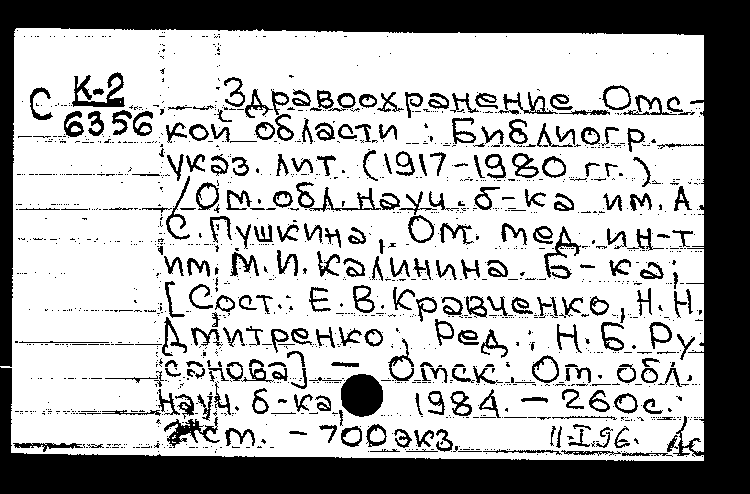 С К-2
6356
Здравоохранение Омс-
кой области : Библиогр.
указ. лит. (1917-1980 гг.)
/Ом. обл. науч. б-ка им. А.
С. Пушкина, Ом. мед. ин-т
им. М. И. Калинина. Б-ка;
[Сост.: Е. В. Кравченко, Н. Н.
Дмитренко; Ред.: Н. Б. Ру-
санова]. — Омск: Ом. обл.
науч. б-ка, 1984. — 260с.;
см. - 700 экз. 11.I.96.